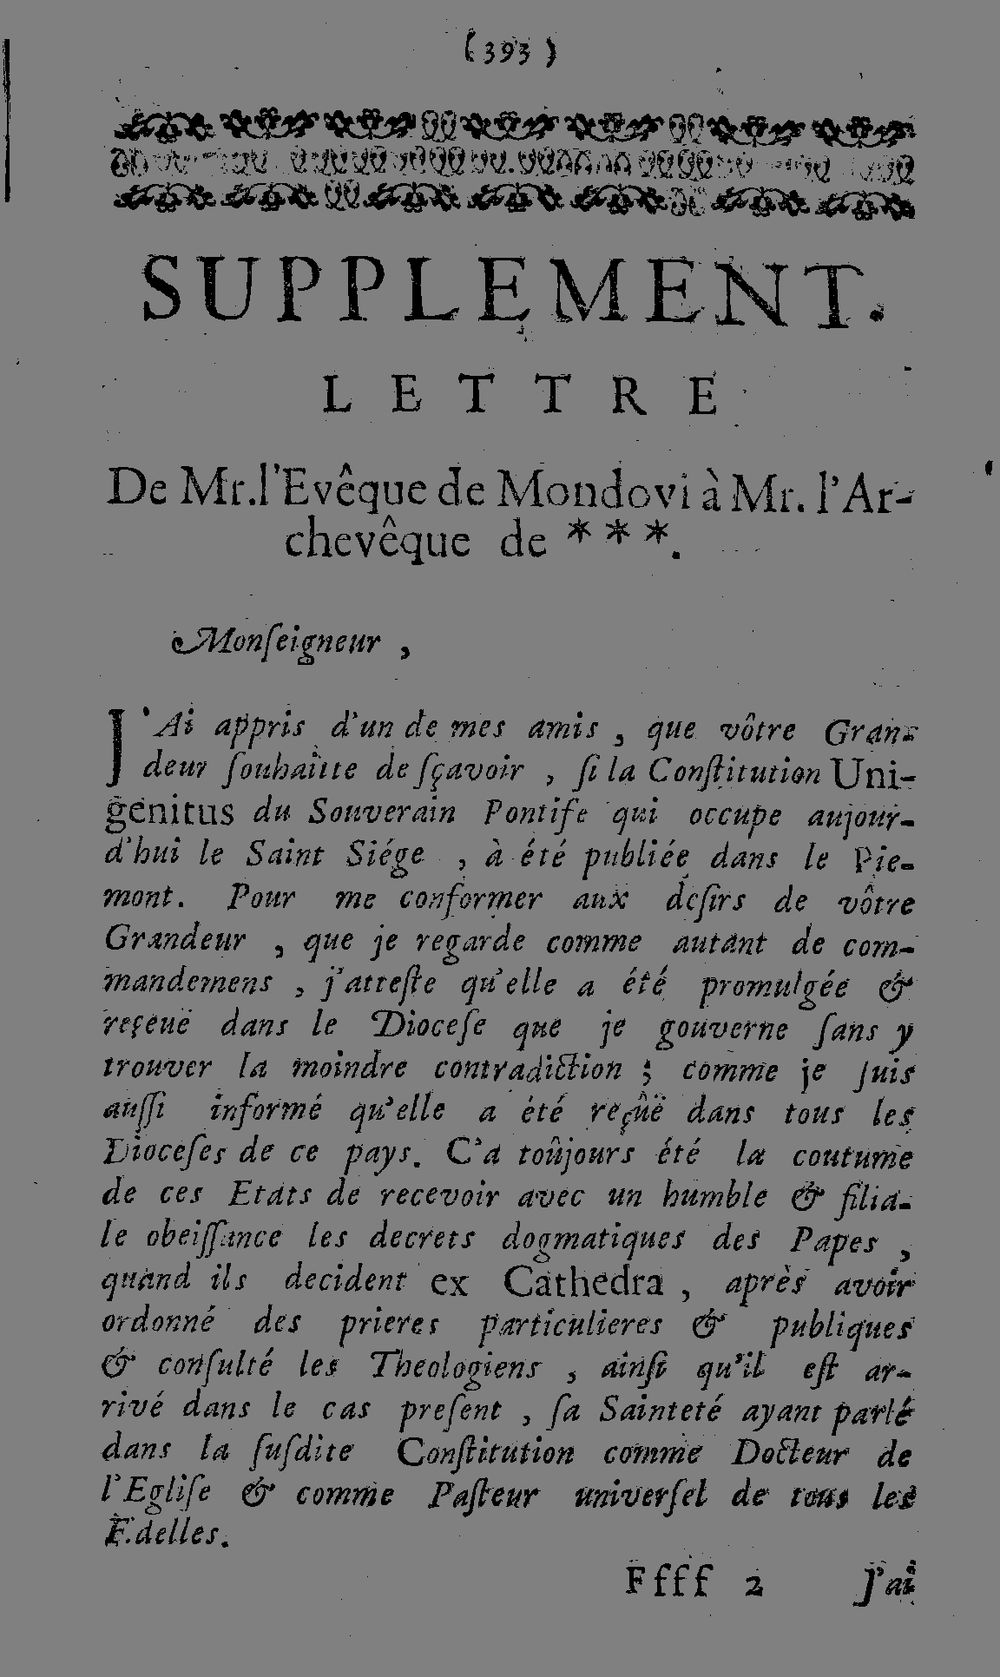 (393)
SUPPLEMENT.
LETTRE
De Mr. l'Evêque de Mondovi à Mr. l'Ar-
chevêque de ***.
Monſeigneur,
J'Ai appris d'un de mes amis, que vôtre Gran-
deur ſouhaitte de ſçavoir, ſi la Conſtitution Uni-
genitus du Souverain Pontife qui occupe aujour-
d'hui le Saint Siége, à été publiée dans le Pie-
mont. Pour me conformer aux deſirs de vôtre
Grandeur, que je regarde comme autant de com-
mandemens, j'atteſte qu'elle a été promulgée &
reçeuë dans le Dioceſe que je gouverne ſans y
trouver la moindre contradiction; comme je ſuis
auſſi informé qu'elle a été reçûë dans tous les
Dioceſes de ce pays. C'a toûjours été la coutume
de ces Etats de recevoir avec un humble & filia-
le obeiſſance les decrets dogmatiques des Papes,
quand ils decident ex Cathedra, après avoir
ordonné des prieres particulieres & publiques
& conſulté les Theologiens, ainſi qu'il eſt ar-
rivé dans le cas preſent, ſa Sainteté ayant parlé
dans la ſuſdite Conſtitution comme Docteur de
l'Egliſe & comme Paſteur univerſel de tous les
Fidelles.
Ffff 2 J'ai